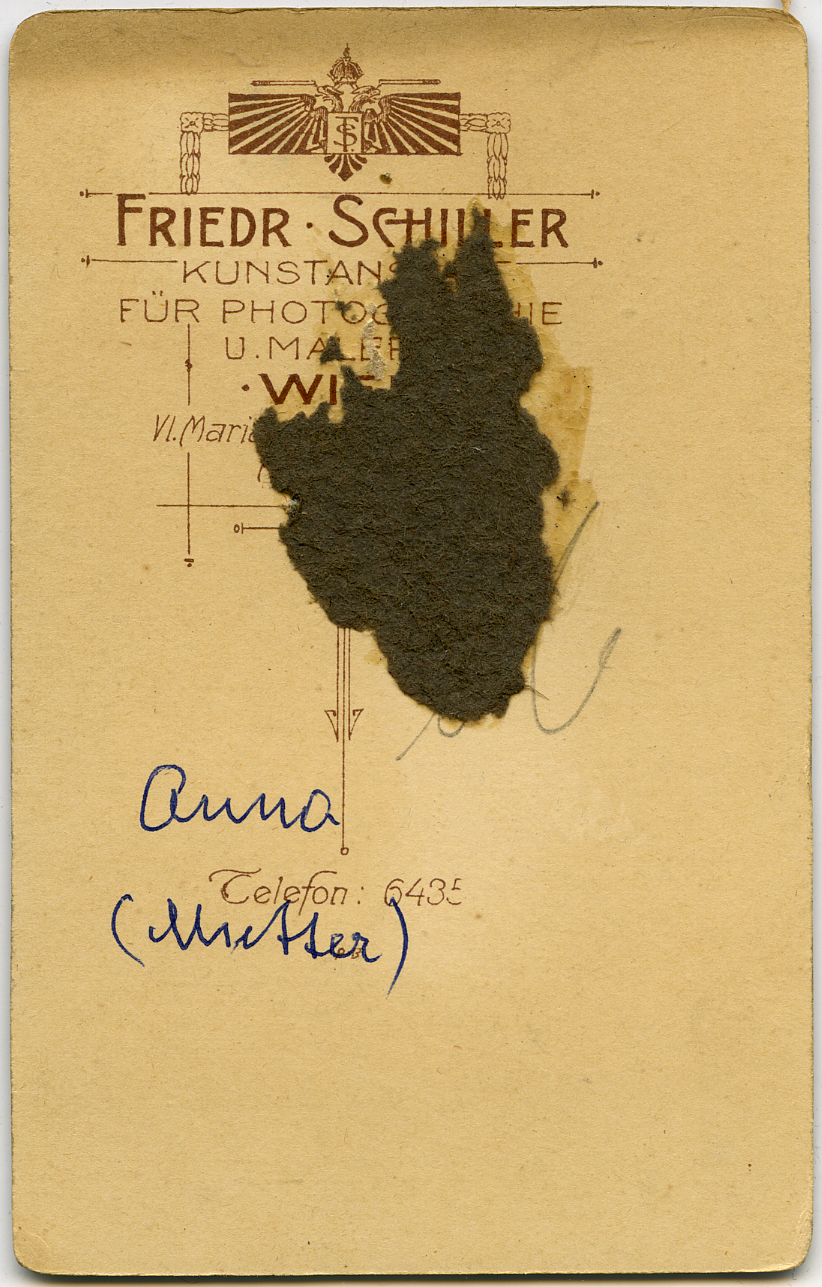 FRIEDR · SCHILLER
KUNSTANS
FÜR PHOTOG HIE
U. MALER
· WIE
VI. Maria
Anna
Telefon: 6435
(Mutter)